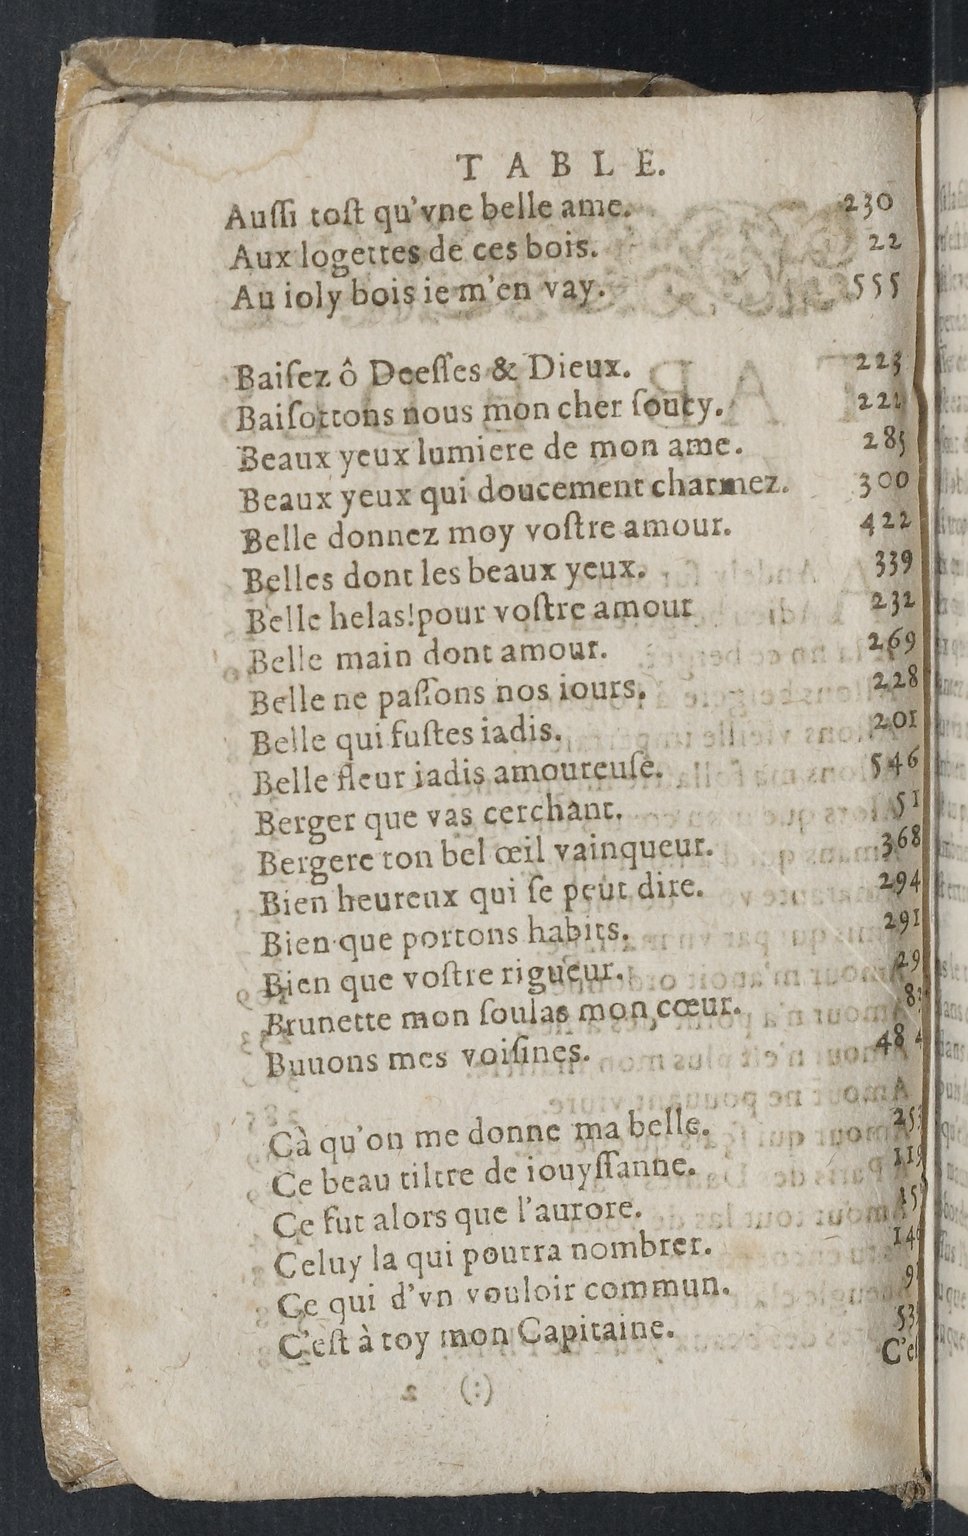 TABLE.
Auſſi toſt qu'vne belle ame. 230
Aux logettes de ces bois. 22
Au ioly bois ie m'en vay. 555
Baiſez ô Deeſſes & Dieux. 223
Baiſottons nous mon cher ſoucy. 222
Beaux yeux lumiere de mon ame. 285
Beaux yeux qui doucement charmez. 300
Belle donnez moy voſtre amour. 422
Belles dont les beaux yeux. 339
Belle helas!pour voſtre amour 232
Belle main dont amour. 269
Belle ne paſſons nos iours. 228
Belle qui fuſtes iadis. 201
Belle fleur iadis amoureuſe. 546
Berger que vas cerchant. 51
Bergere ton bel œil vainqueur. 368
Bien heureux qui ſe peut dire. 294
Bien que portons habits. 291
Bien que voſtre rigueur. 29
Brunette mon ſoulas mon cœur.
Buuons mes voiſines. 484
Cà qu'on me donne ma belle.
Ce beau tiltre de iouyſſanne. 119
Ce fut alors que l'aurore.
Celuy la qui pourra nombrer.
Ce qui d'vn vouloir commun.
C'eſt à toy mon Capitaine.
C'eſ
(:)